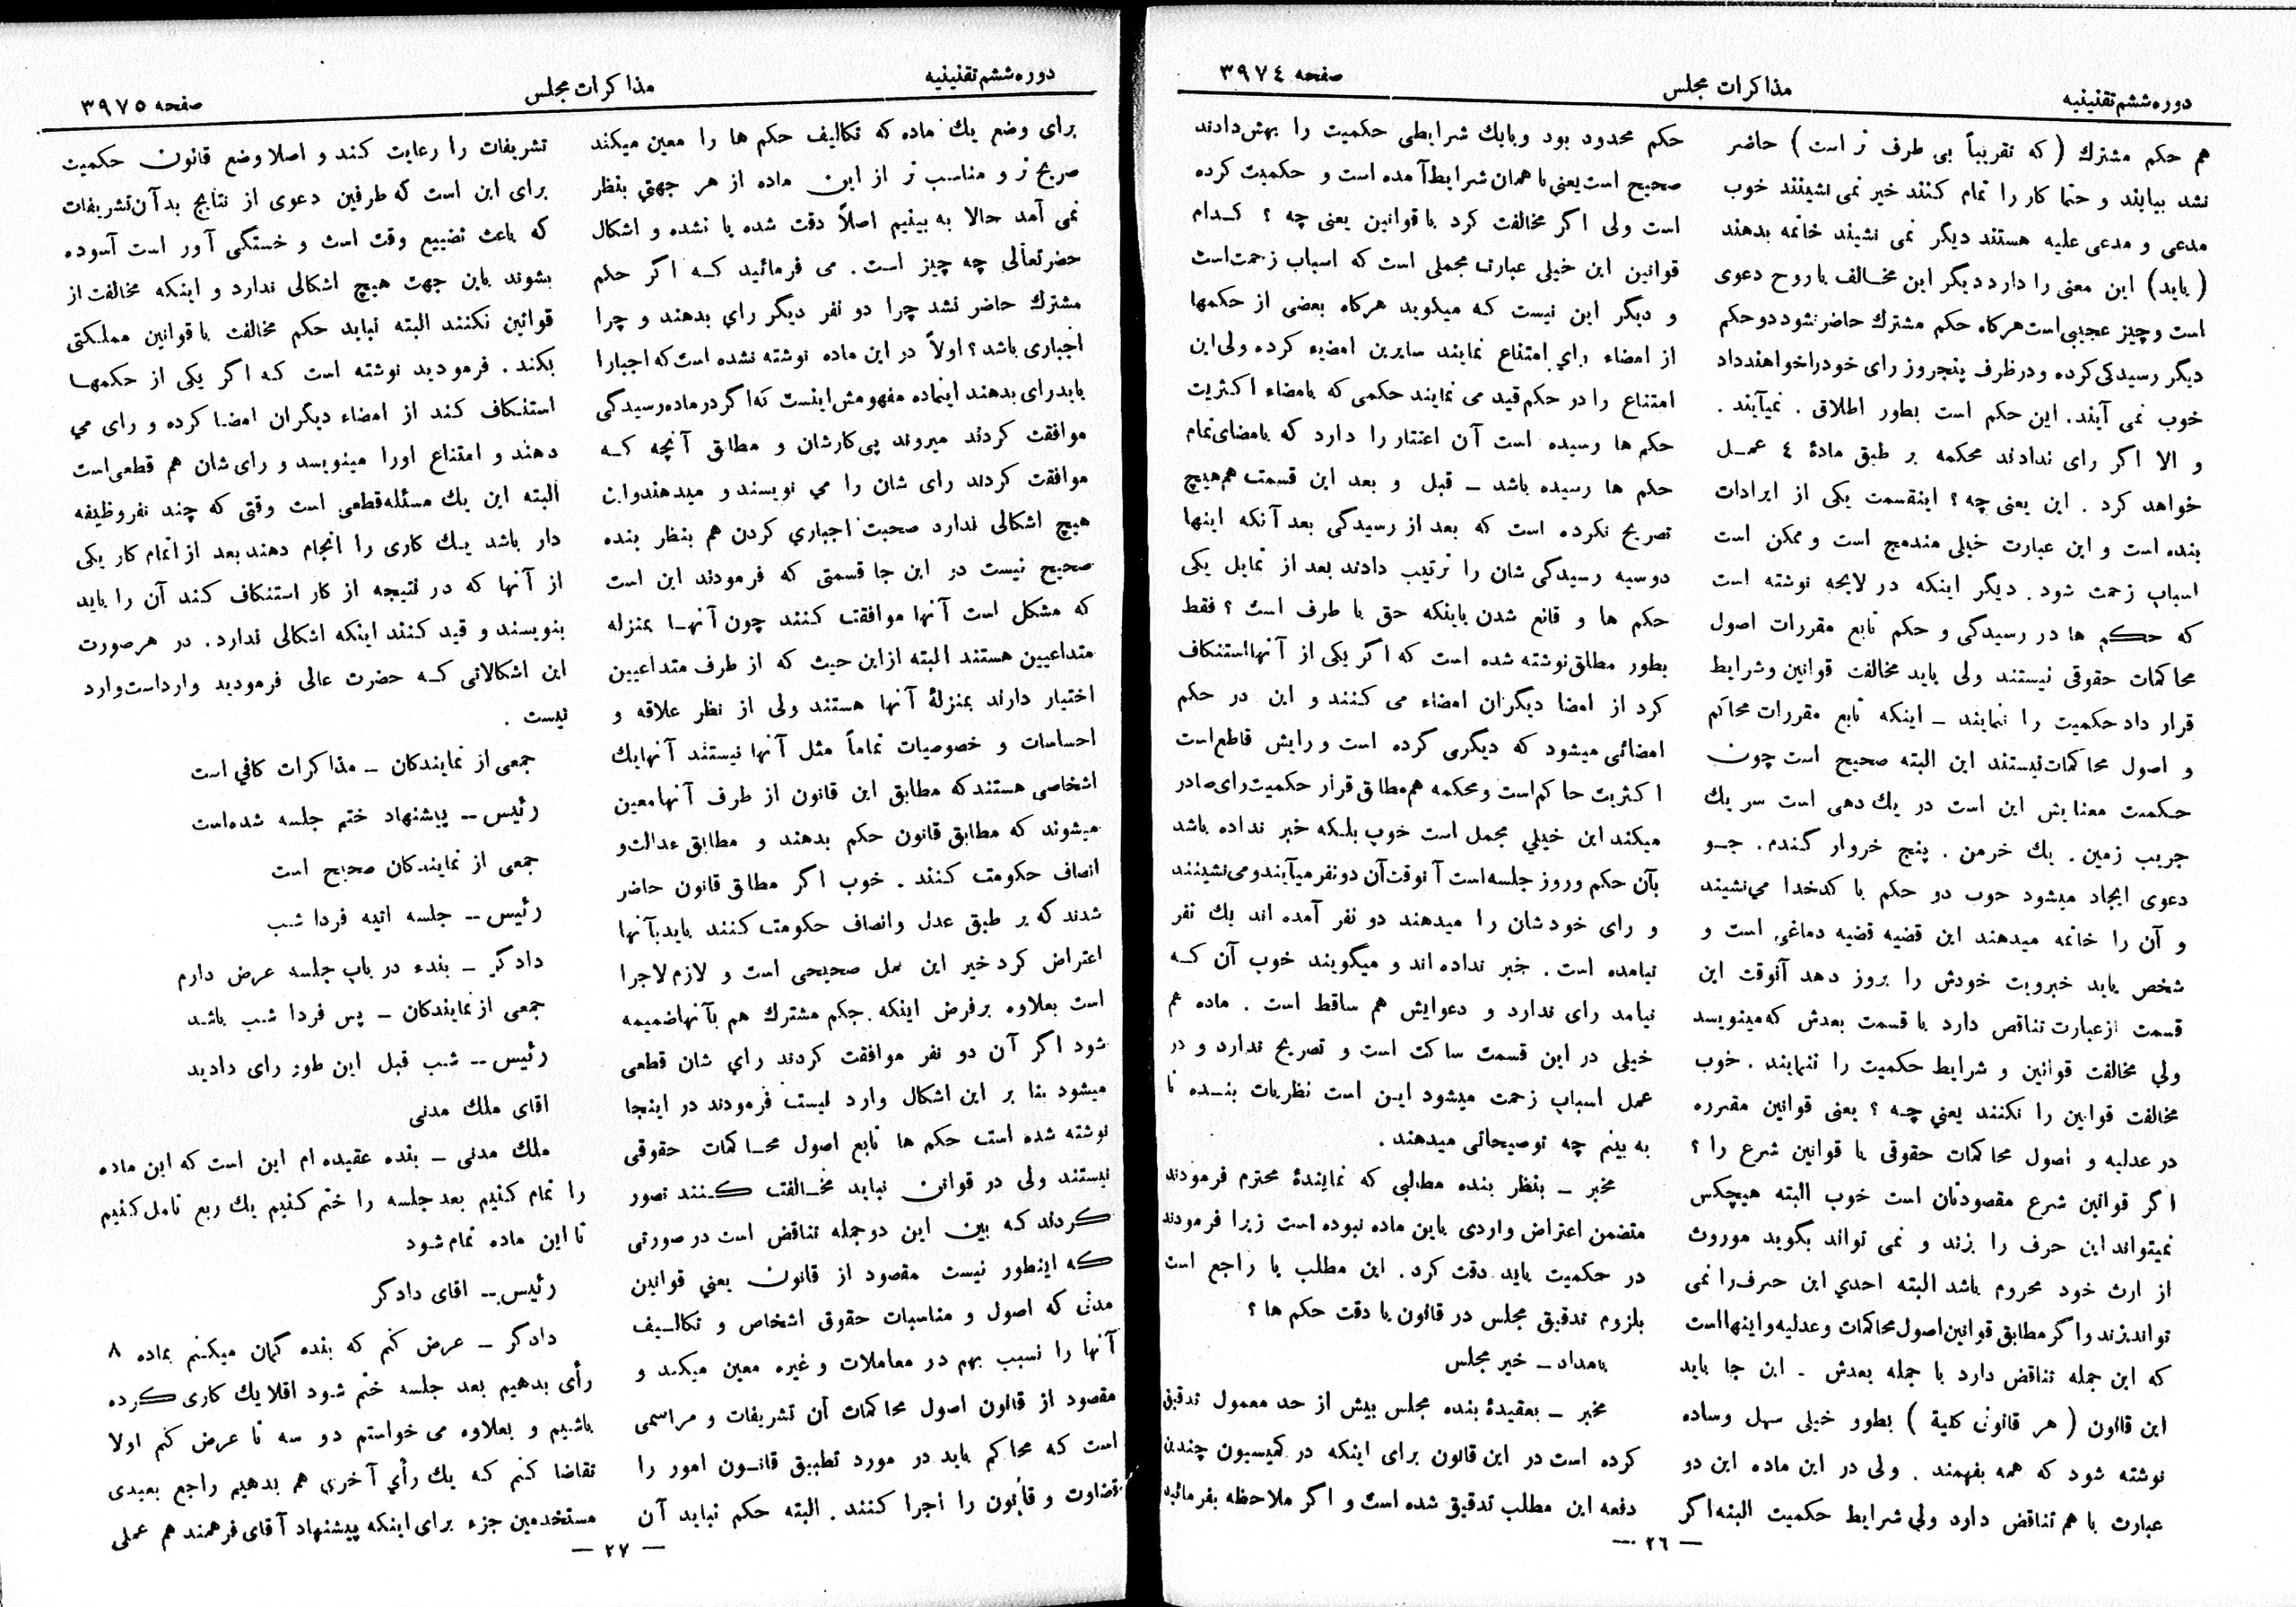 دوره ششم تقنینیه
مذاکرات مجلس
صفحه ۳۹۷۴
هم حکم مشترك (که تقریباً بی طرف تر است) حاضر
نشد بیایند و حتما کار را تمام کنند خیر نمی نشینند خوب
مدعی و مدعی علیه هستند دیگر نمی نشیند خاتمه بدهند
(باید) این معنی را دارد دیگر این مخالف با روح دعوی
است و چیز عجیبی است هرکاه حکم مشترك حاضر نشود دو حکم
دیگر رسیدکی کرده و در ظرف پنجروز رای خود را خواهند داد
خوب نمی آیند. این حکم است بطور اطلاق. نمیآیند.
و الا اگر رای ندادند محکمه بر طبق مادۀ ٤ عمل
خواهد کرد. این یعنی چه؟ اینقسمت یکی از ایرادات
بنده است و این عبارت خیلی مندمج است و ممکن است
اسباب زحمت شود. دیگر اینکه در لایحه نوشته است
که حکم ها در رسیدگی و حکم تابع مقررات اصول
محاکمات حقوقی نیستند ولی باید مخالفت قوانین و شرایط
قرار داد حکمیت را ننمایند ـ اینکه تابع مقررات محاکم
و اصول محاکمات نیستند این البته صحیح است چون
حکمیت معنایش این است در یك دهی است سر یك
جریب زمین. یك خرمن. پنج خروار گندم. جو
دعوی ایجاد میشود خوب دو حکم با کدخدا می نشیند
و آن را خاتمه میدهند این قضیه قضیه دماغی است و
شخص باید خبرویت خودش را بروز دهد آنوقت این
قسمت از عبارت تناقض دارد با قسمت بعدش که مینویسد
ولی مخالفت قوانین و شرایط حکمیت را ننمایند. خوب
مخالفت قوانین را نکنند یعنی چه؟ یعنی قوانین مقرره
در عدلیه و اصول محاکمات حقوقی یا قوانین شرع را؟
اگر قوانین شرع مقصودتان است خوب البته هیچکس
نمیتواند این حرف را بزند و نمی تواند بگوید موروث
از ارث خود محروم باشد البته احدی این حرف را نمی
تواند بزند و اگر مطابق قوانین اصول محاکمات و عدلیه و اینها است
که این جمله تناقض دارد با جمله بعدش ـ این جا باید
این قانون (هر قانونی کلیة) بطور خیلی سهل و ساده
نوشته شود که همه بفهمند. ولی در این ماده این دو
عبارت با هم تناقض دارد ولی شرایط حکمیت البته اگر
حکم محدود بود و بایك شرایطی حکمیت را بهش دادند
صحیح است یعنی با همان شرایط آمده است و حکمیت کرده
است ولی اگر مخالفت کرد با قوانین یعنی چه؟ کدام
قوانین این خیلی عبارت مجملی است که اسباب زحمت است
و دیگر این نیست که میگوید هرکاه بعضی از حکمها
از امضاء رأی امتناع نمایند سایرین امضاء کرده ولی این
امتناع را در حکم قید می نمایند حکمی که بامضاء اکثریت
حکم ها رسیده است آن اعتبار را دارد که بامضای تمام
حکم ها رسیده باشد ـ قبل و بعد این قسمت هم هیچ
تصریح نکرده است که بعد از رسیدگی بعد آنکه اینها
دوسیه رسیدگی شان را ترتیب دادند بعد از تمایل یکی
حکم ها و قانع شدن باینکه حق با طرف است؟ فقط
بطور مطلق نوشته شده است که اگر یکی از آنها استنکاف
کرد از امضا دیگران امضاء می کنند و این در حکم
امضائی میشود که دیگری کرده است و رایش قاطع است
اکثریت حاکم است و محکمه هم مطابق قرار حکمیت رای صادر
میکند این خیلی مجمل است خوب بلکه خبر نداده باشد
بآن حکم و روز جلسه است آنوقت آن دو نفر میآیند و می نشینند
و رای خود شان را میدهند دو نفر آمده اند یك نفر
نیامده است. خبر نداده اند و میگویند خوب آن که
نیامد رای ندارد و دعوایش هم ساقط است. ماده هم
خیلی در این قسمت ساکت است و تصریح ندارد و در
عمل اسباب زحمت میشود این است نظریات بنده تا
به بینم چه توصیحاتی میدهند.
مخبر ـ بنظر بنده مطالبی که نمایندۀ محترم فرمودند
متضمن اعتراض واردی باین ماده نبوده است زیرا فرمودند
در حکمیت باید دقت کرد. این مطلب با راجع است
بلزوم تدقیق مجلس در قانون یا دقت حکم ها؟
بامداد ـ خیر مجلس
مخبر ـ بعقیدۀ بنده مجلس بیش از حد معمول تدقیق
کرده است در این قانون برای اینکه در کمیسیون چندین
دفعه این مطلب تدقیق شده است و اگر ملاحظه بفرمائید
— ۲٦ —
دوره ششم تقنینیه
مذاکرات مجلس
صفحه ۳۹۷٥
برای وضع یك ماده که تکالیف حکم ها را معین میکند
صریح تر و مناسب تر از این ماده از هر جهتی بنظر
نمی آمد حالا به بینیم اصلاً دقت شده یا نشده و اشکال
حضرتعالی چه چیز است. می فرمائید که اگر حکم
مشترك حاضر نشد چرا دو نفر دیگر رأی بدهند و چرا
اجباری باشد؟ اولاً در این ماده نوشته نشده است که اجبارا
باید رای بدهند اینماده مفهومش اینست که اگر در ماده رسیدگی
موافقت کردند میروند پی کارشان و مطابق آنچه که
موافقت کردند رای شان را می نویسند و میدهند و این
هیچ اشکالی ندارد صحبت اجباری کردن هم بنظر بنده
صحیح نیست در این جا قسمتی که فرمودند این است
که مشکل است آنها موافقت کنند چون آنها بمنزله
متداعیین هستند البته از این حیث که از طرف متداعیین
اختیار دارند بمنزلۀ آنها هستند ولی از نظر علاقه و
احساسات و خصوصیات تماماً مثل آنها نیستند آنها یك
اشخاصی هستند که مطابق این قانون از طرف آنها معین
میشوند که مطابق قانون حکم بدهند و مطابق عدالت و
انصاف حکومت کنند. خوب اگر مطابق قانون حاضر
شدند که بر طبق عدل و انصاف حکومت کنند باید بآنها
اعتراض کرد خیر این عمل صحیحی است و لازم لاجرا
است بعلاوه بر فرض اینکه حکم مشترك هم بآنها ضمیمه
شود اگر آن دو نفر موافقت کردند رأی شان قطعی
میشود بنا بر این اشکال وارد نیست فرمودند در اینجا
نوشته شده است حکم ها تابع اصول محاکمات حقوقی
نیستند ولی در قوانین نباید مخالفت کنند تصور
کردند که بین این دو جمله تناقض است در صورتی
که اینطور نیست مقصود از قانون یعنی قوانین
مدنی که اصول و مناسبات حقوق اشخاص و تکالیف
آنها را نسبت بهم در معاملات و غیره معین میکند و
مقصود از قانون اصول محاکمات آن تشریفات و مراسمی
است که محاکم باید در مورد تطبیق قانون امور را
قضاوت و قانون را اجرا کنند. البته حکم نباید آن
تشریفات را رعایت کند و اصلا وضع قانون حکمیت
برای این است که طرفین دعوی از نتایج بد آن تشریفات
که باعث تضییع وقت است و خستگی آور است آسوده
بشوند باین جهت هیچ اشکالی ندارد و اینکه مخالفت از
قوانین نکنند البته نباید حکم مخالفت با قوانین مملکتی
بکند. فرمودید نوشته است که اگر یکی از حکمها
استنکاف کند از امضاء دیگران امضا کرده و رای می
دهند و امتناع اورا مینویسد و رای شان هم قطعی است
البته این یك مسئله قطعی است وقتی که چند نفر وظیفه
دار باشد یك کاری را انجام دهند بعد از اتمام کار یکی
از آنها که در نتیجه از کار استنکاف کند آن را باید
بنویسند و قید کنند اینکه اشکالی ندارد. در هر صورت
این اشکالاتی که حضرت عالی فرمودید وارد است وارد
نیست.
جمعی از نمایندکان ـ مذاکرات کافی است
رئیس ـ پیشنهاد ختم جلسه شده است
جمعی از نمایندکان صحیح است
رئیس ـ جلسه اتیه فردا شب
دادگر ـ بنده در باب جلسه عرض دارم
جمعی از نمایندکان ـ پس فردا شب باشد
رئیس ـ شب قبل این طور رای دادید
اقای ملك مدنی
ملك مدنی ـ بنده عقیده ام این است که این ماده
را تمام کنیم بعد جلسه را ختم کنیم یك ربع تامل کنیم
تا این ماده تمام شود
رئیس ـ اقای دادگر
دادگر ـ عرض کنم که بنده گمان میکنم بماده ۸
رأی بدهیم بعد جلسه ختم شود اقلا یك کاری کرده
باشیم و بعلاوه می خواستم دو سه تا عرض کنم اولا
تقاضا کنم که یك رأی آخری هم بدهیم راجع بعیدی
مستخدمین جزء برای اینکه پیشنهاد آقای فرهمند هم عملی
— ۲۷ —